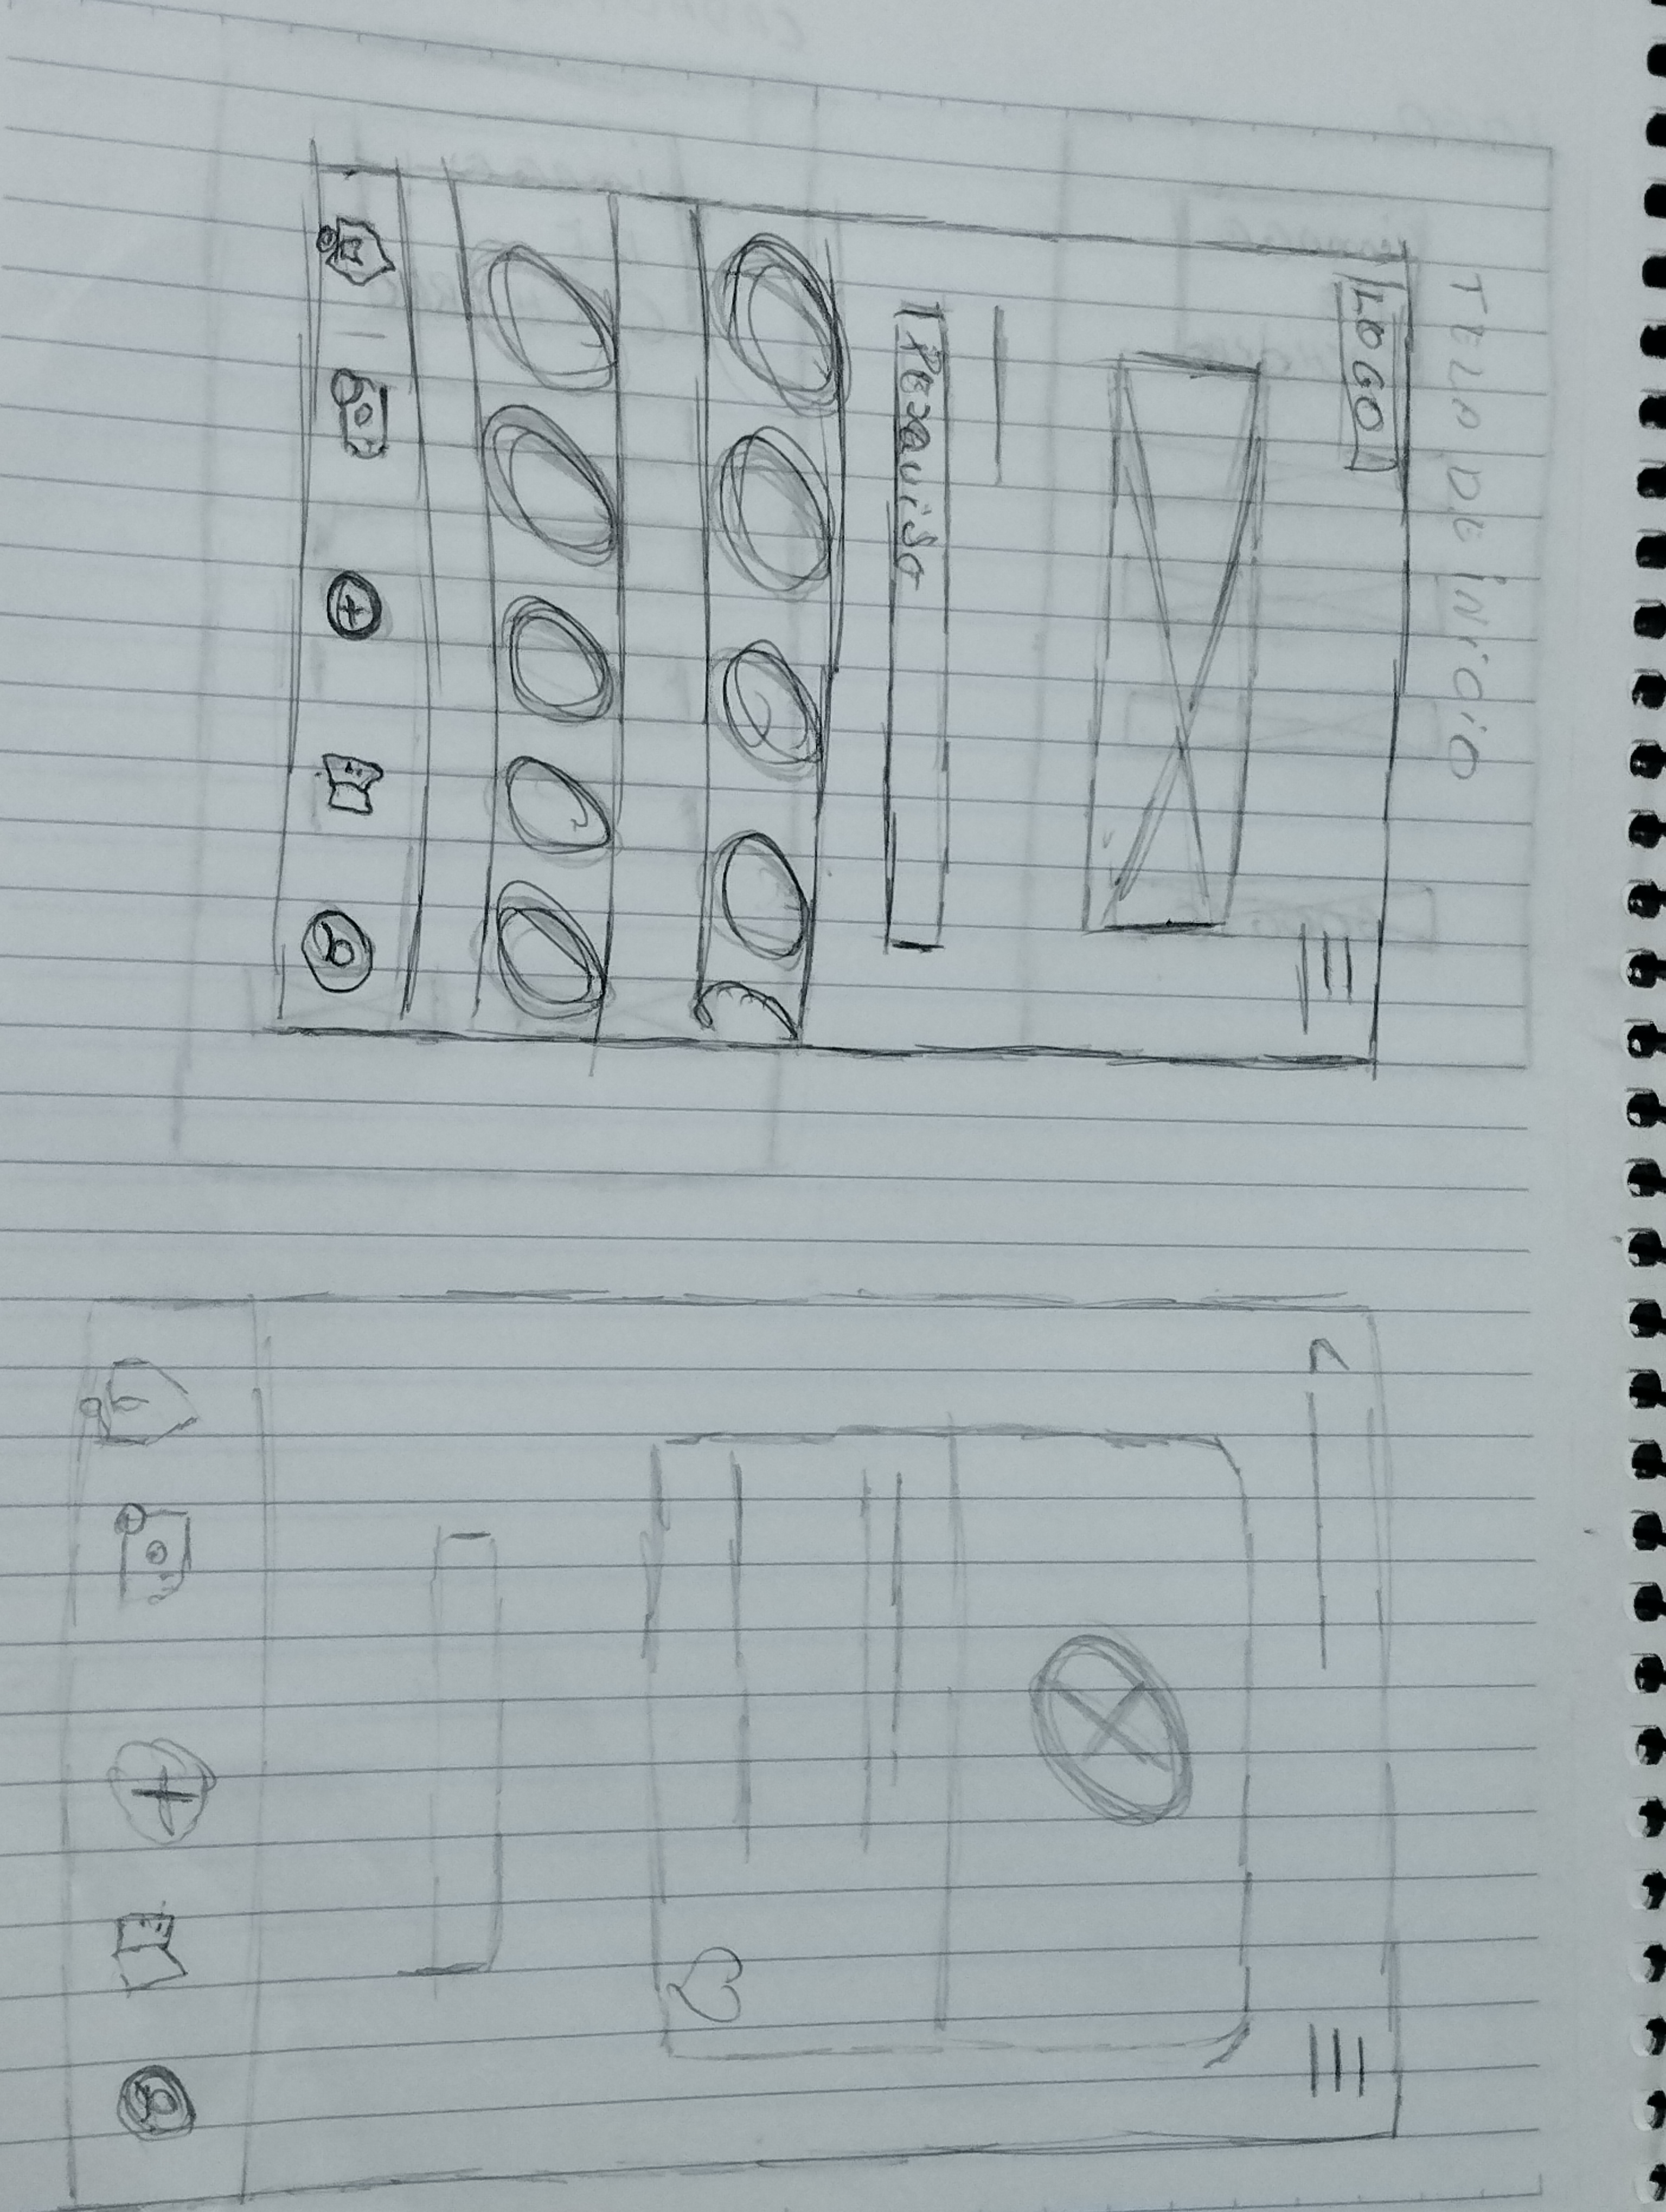 TELA DE INICIO
LOGO
PESQUISA